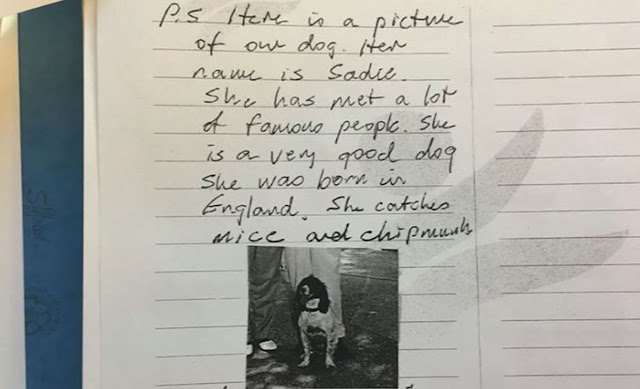 P.S Here is a picture
of our dog. Her
name is Sadie.
She has met a lot
of famous people. She
is a very good dog
She was born in
England. She catches
mice and chipmunks